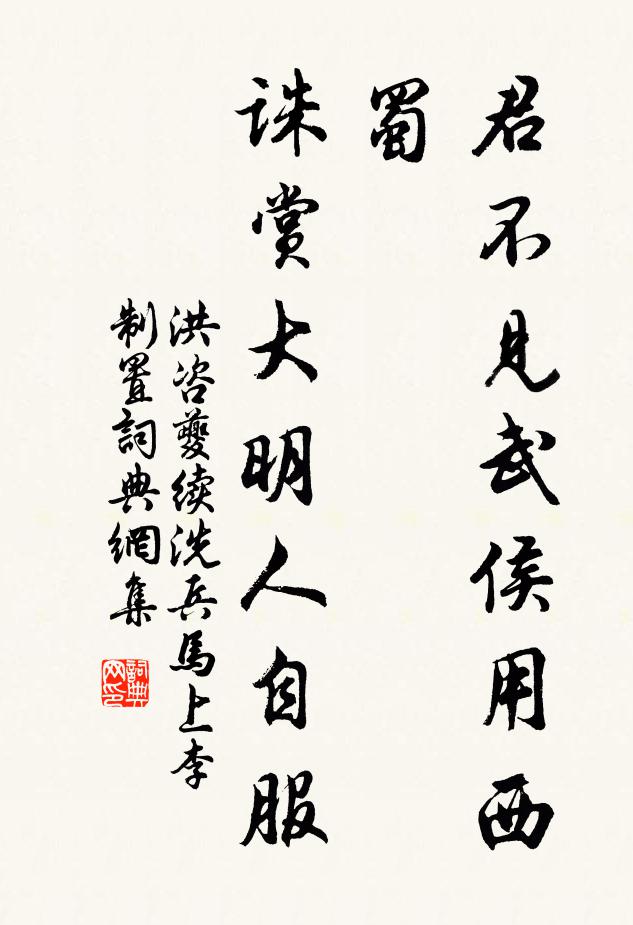 君不見武侯用西
蜀
誅賞大明人自服
洪咨夔續洗兵馬上李
制置詞典網集
詞典
网印